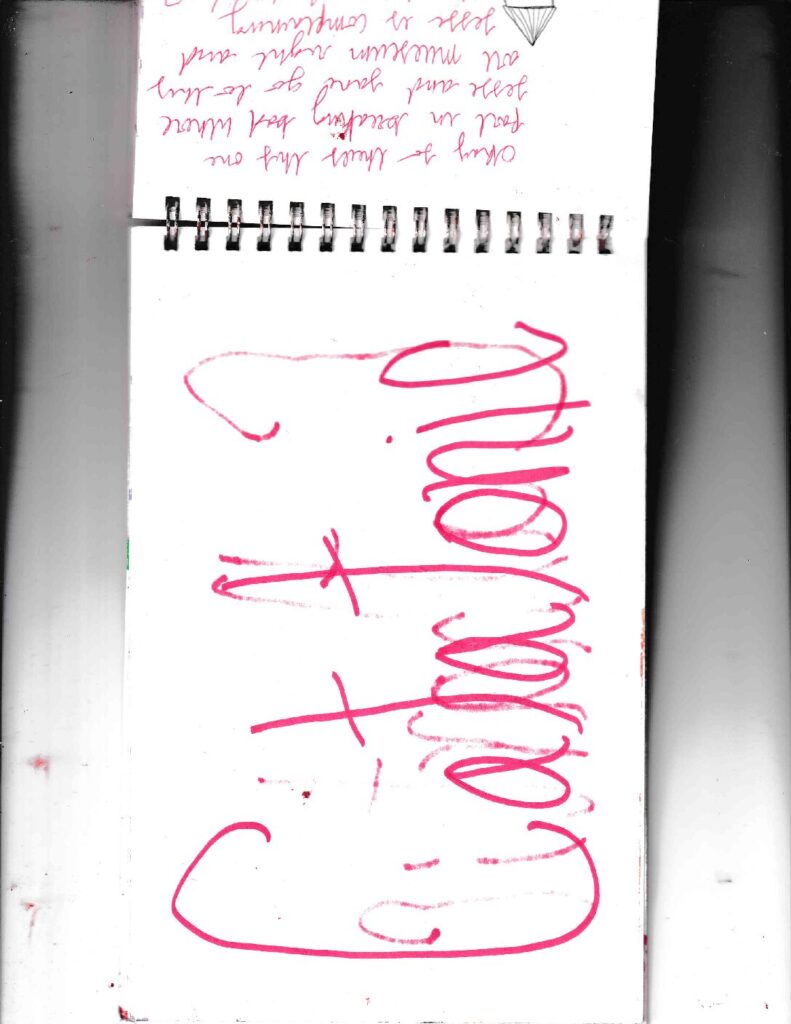 Okay so theres this one
part in breaking bad where
jesse and jane go to this
art mueseum right and
jesse is complaining
Catatonic